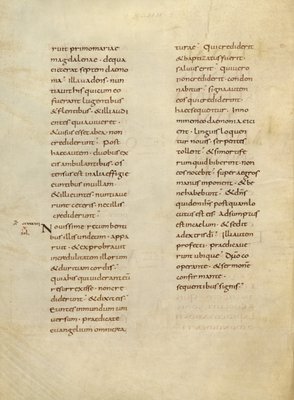 ruit primo mariae
magdalenae · de qua
eiecerat septem daemo
nia · Illa uadens · nun
tiauit his qui cum eo
fuerant lugentibus
& flentibus · & illi audi
entes quia uiueret
& uisus esset ab ea · non
crediderunt · Post
haec autem duobus ex
eis ambulantibus · os
tensus est in alia effigie
euntibus in uillam ·
& illi euntes · nuntiaue
runt ceteris · nec illis
crediderunt ·
Nouissime recumbenti
bus illis undecim · appa
ruit · & exprobrauit
incredulitatem illorum
& duritiam cordis ·
quia his qui uiderant eum
resurrexisse · non cre
diderunt · & dixit eis ·
Euntes in mundum uni
uersum · praedicate
euangelium omni crea
turae · Qui crediderit
& baptizatus fuerit
saluus erit · Qui uero
non crediderit · condem
nabitur · Signa autem
eos qui crediderint
haec sequentur · In no
mine meo daemonia eici
ent · linguis loquen
tur nouis · serpentes
tollent · & si mortife
rum quid biberint · non
eos nocebit · super aegros
manus imponent · & be
ne habebunt · & dns
quidem ihs postquam lo
cutus est eis · adsumptus
est in caelum · & sedit
a dextris di · Illi autem
profecti · praedicaue
runt ubique · Dno co
operante · & sermonem
confirmante ·
sequentibus signis ·